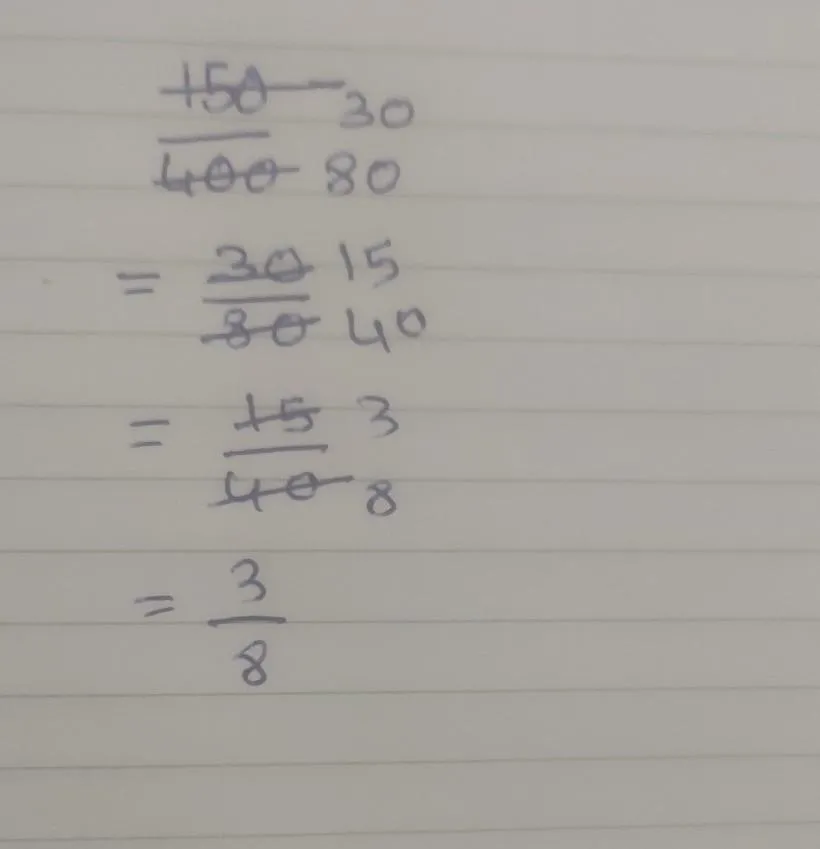 150 30
400 80
= 30 15
80 40
= 15 3
40 8
= 3
8